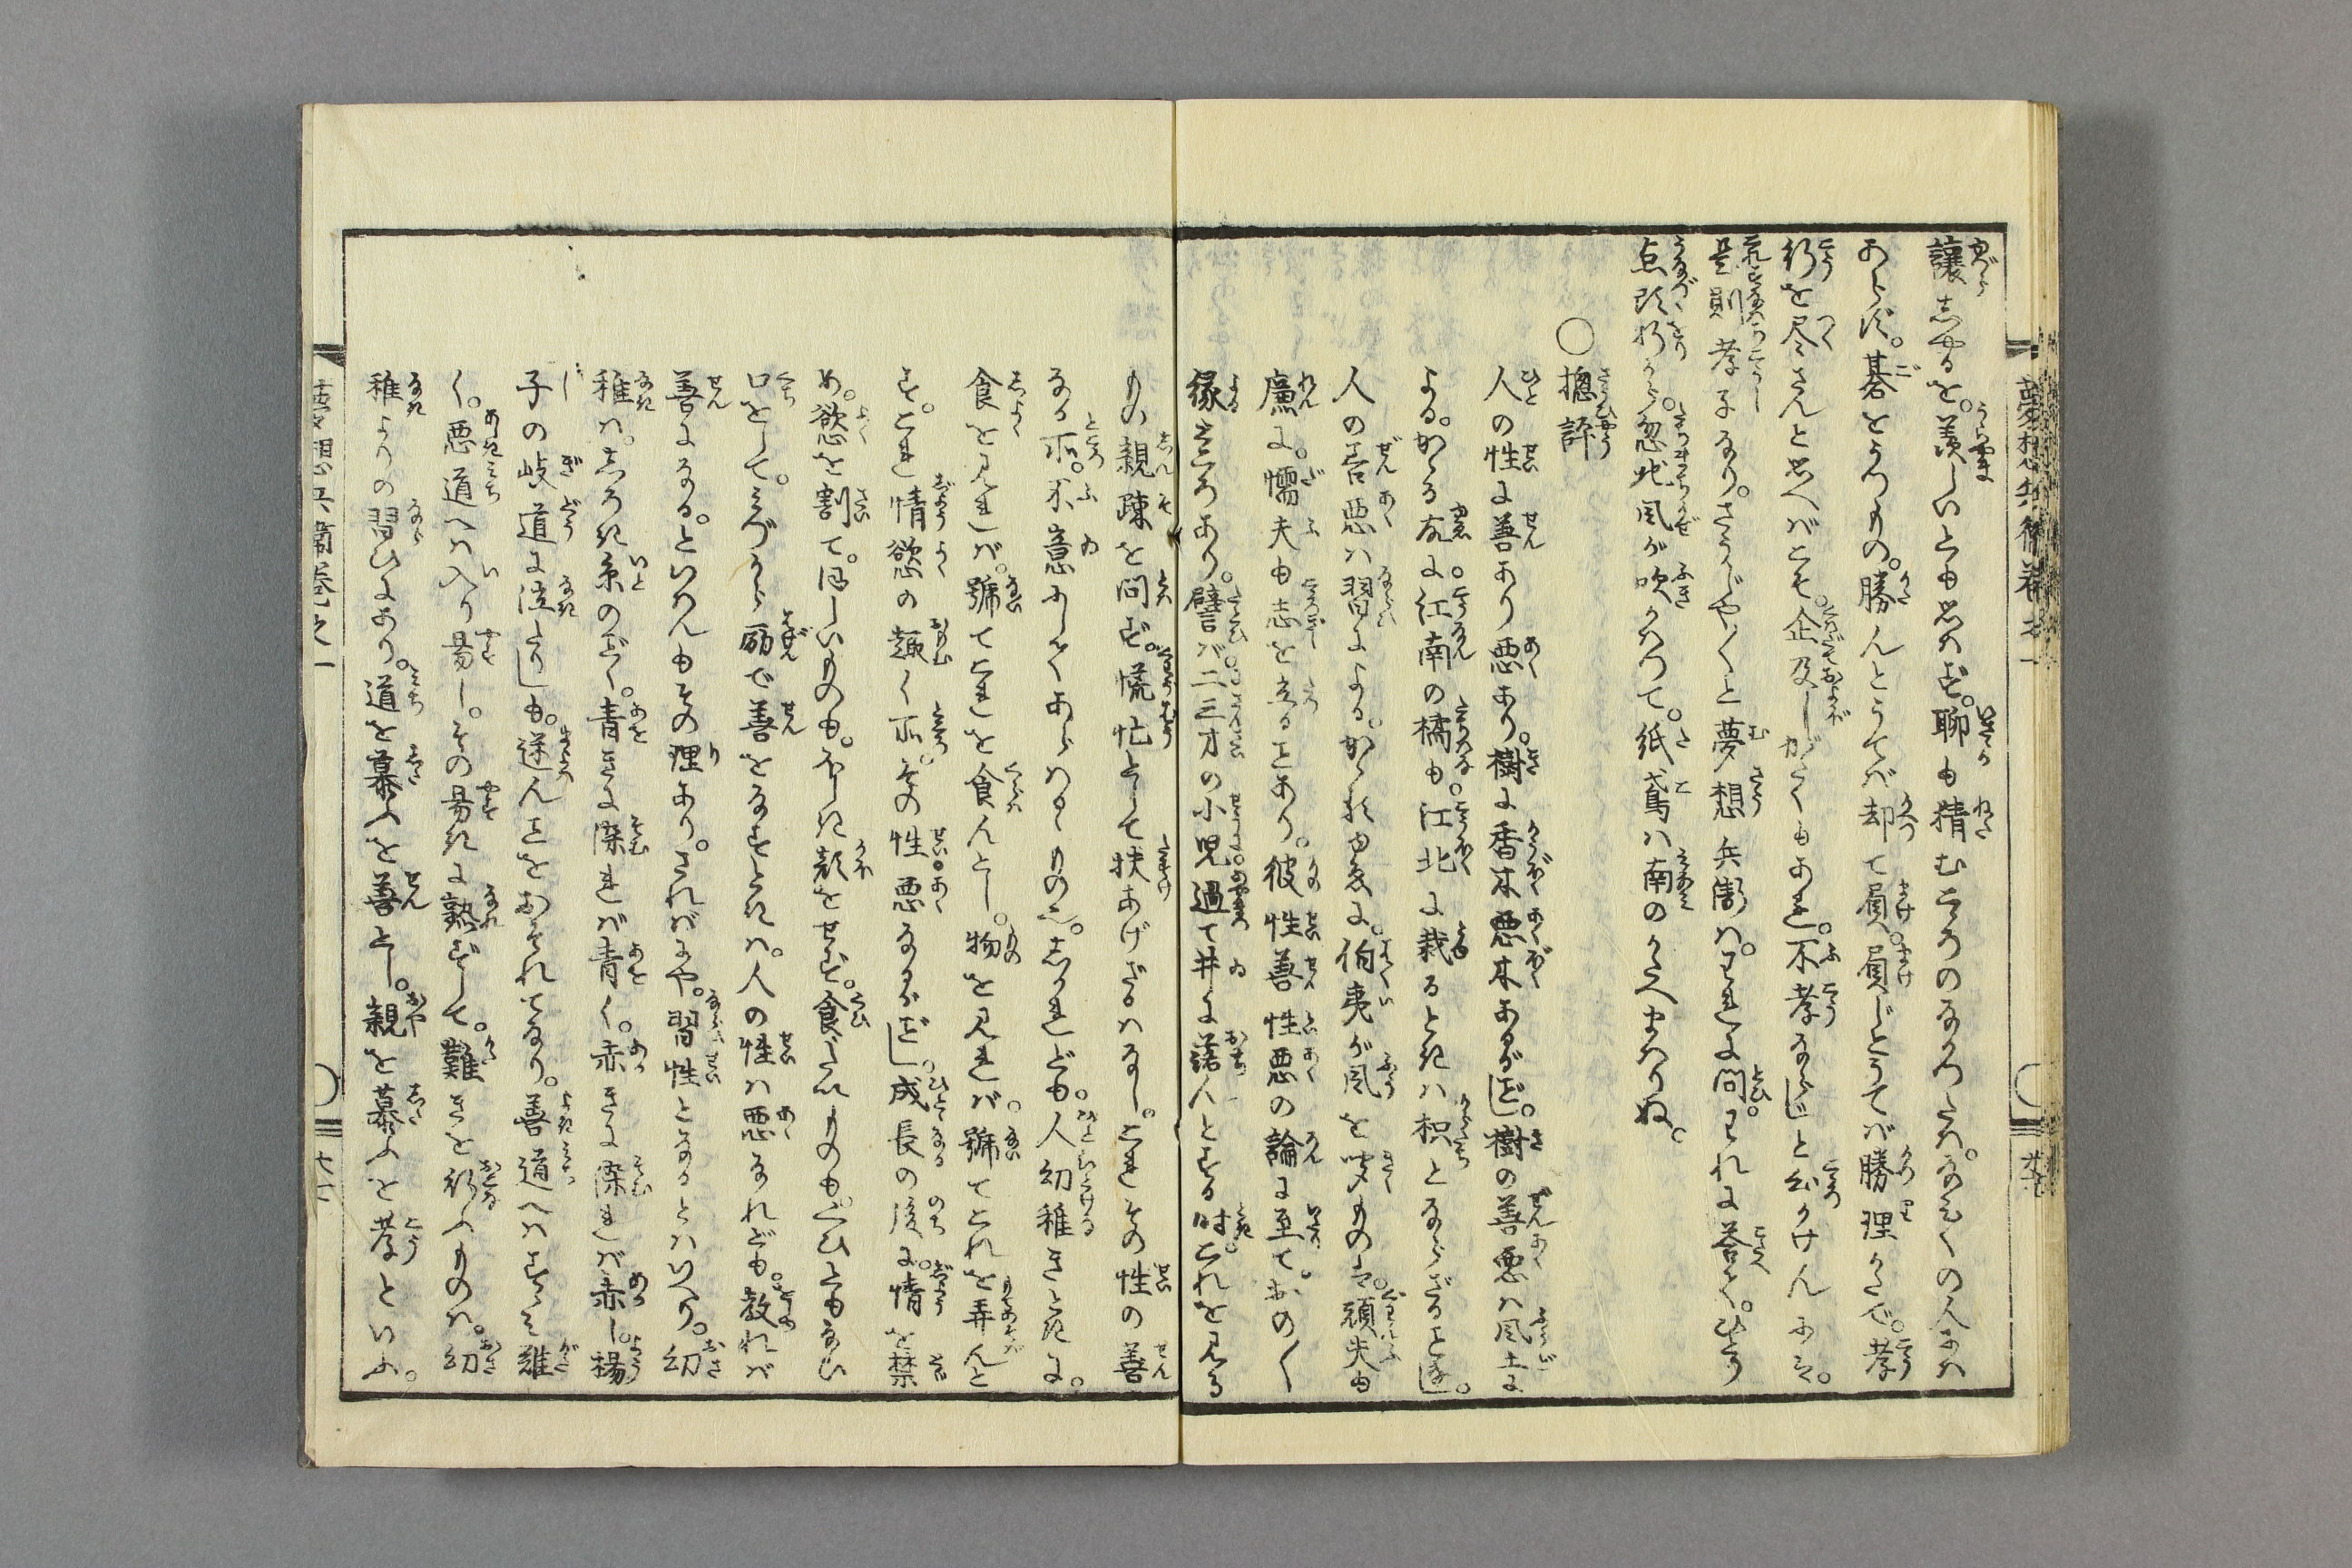 讓しやるを。羨しいとも思はず。聊も精むこゝろのなかつたは。なみ〳〵の人にはあらず。
碁をうつもの。勝んとうてば却て屓。屓じとうてば勝理かたで。孝
行を尽さんと思へばこそ。企及しがたくもあれ。不孝ならじと心がけんには。
是則孝子なり。さうじや〳〵と夢想兵衛は。われに問。われに答て。ひとり
点頭折から。忽地風が吹かはつて。紙鳶は南のかたへまはりぬ。
○摠評
人の性に善あり悪あり。樹に香木悪木あるがごとし。樹の善悪は風土に
よる。かゝる故に江南の橘も江北に栽るときは枳とならざることなし。
人の善悪は習による。かゝるゆゑに。伯夷が風を聞ものは。頑夫も
廉に。懦夫も志を立ることあり。彼性善性悪の論に至て。おの〳〵
縁ところあり。譬ば二三才の小児過て井に落入とする時。これを見る
もの親疎を問ず。慌忙として扶あげざるはなし。これその性の善
なる所。不意にしてあらはるゝもの也。しかれども。人幼稚きときに。
食を見れば。號てこれを食んとし。物を見れば。號てこれを弄んと
す。これ情慾の趣く所。その性悪なるがごとし。成長の後に。情を禁
め。慾を割て。ほしいものも。ほしき顔をせず。食たいものも。くひともない
口をして。みづから勵で善をなすときは。人の性は悪なれども。教れば
善になる。といはんもその理あり。さればにや。習性となるとはいへり。幼
稚は。しろき糸のごとく。青きに染れば青く。赤きに染れば赤し。楊
子の岐道に泣たりしも。迷んことをおそれてなり。善道へはすゝみ難
く。悪道へは入り易し。その易きに熟ずして。難きを行ふものは。幼
稚よりの習ひにあり。道を慕ふを善とし。親を慕ふを孝といふ。
夢想兵衛巻之一